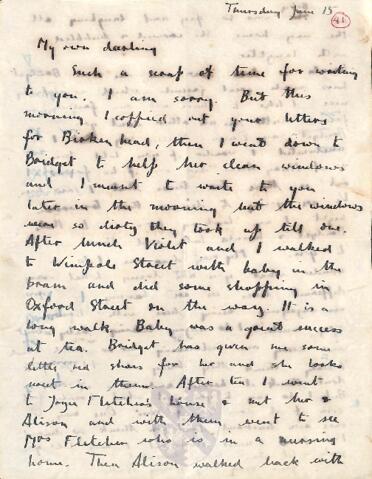 Thursday June 15
41
My own darling
Such a scrap of time for writing
to you. I am sorry. But this
morning I coppied out your letters
for Birkenhead, then I went down to
Bridget to help her clean windows
and I meant to write to you
later in the morning but the windows
were so dirty they took up till one.
After lunch Violet and I walked
to Wimpole Street with baby in the
pram and did some shopping in
Oxford Street on the way. It is a
long walk. Baby was a great success
at tea. Bridget has given me some
little red shoes for her and she looks
sweet in them. After tea I went
to Joyce Fletcher's house & met her &
Alison and with them went to see
Mrs Fletcher who is in a nursing
home. Then Alison walked back with